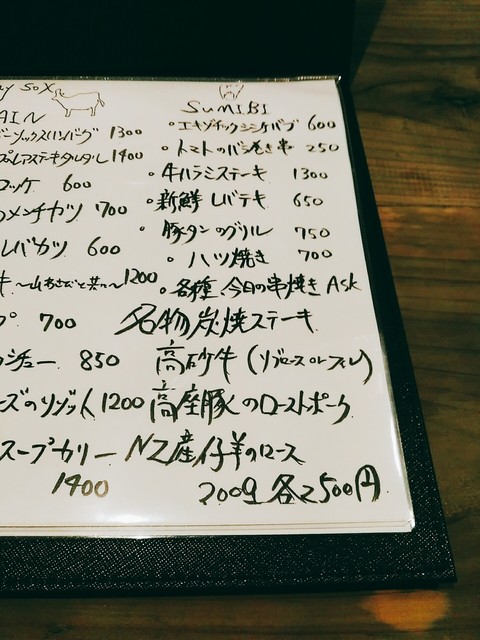 SOX
AIN
ソックスハンバーグ 1300
ステーキタルタル 1400
ロッケ 600
メンチカツ 700
レバカツ 600
キ 〜山わさびと共に〜 1200
プ 700
シチュー 850
ズのリゾット 1200
スープカリー
1400
SUMIBI
・エキゾチックシシケバブ 600
・トマトのバラ巻き串 250
・牛ハラミステーキ 1300
・新鮮レバテキ 650
・豚タンのグリル 750
・ハツ焼き 700
・各種、今日の串焼き Ask
名物炭焼ステーキ
高砂牛(リブロース or フィレ)
高座豚のローストポーク
NZ産仔羊のロース
200g 各2500円